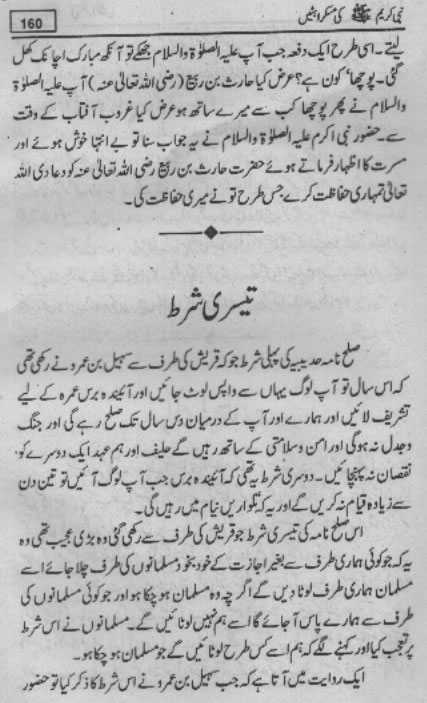 160
نبی کریم ﷺ کی مسکراہٹیں
لیتے۔ اسی طرح ایک دفعہ جب آپ علیہ الصلوٰۃ والسلام جھکے تو آنکھ مبارک اچانک کھل
گئی۔ پوچھا ’کون ہے؟ عرض کیا حارث بن ربیع (رضی اللہ تعالیٰ عنہ) آپ علیہ الصلوٰۃ
والسلام نے پھر پوچھا کب سے میرے ساتھ ہو عرض کیا غروب آفتاب کے وقت
سے۔ حضور نبی اکرم علیہ الصلوٰۃ والسلام نے یہ جواب سنا تو بے انتہا خوش ہوئے اور
مسرت کا اظہار فرماتے ہوئے حضرت حارث بن ربیع رضی اللہ تعالیٰ عنہ کو دعا دی اللہ
تعالیٰ تمہاری حفاظت کرے جس طرح تو نے میری حفاظت کی۔
تیسری شرط
صلح نامہ حدیبیہ کی پہلی شرط جو کہ قریش کی طرف سے سہیل بن عمرو نے رکھی تھی
کہ اس سال تو آپ لوگ یہاں سے واپس لوٹ جائیں اور آئیندہ برس عمرہ کے لیے
تشریف لائیں اور ہمارے اور آپ کے درمیان دس سال تک صلح رہے گی اور جنگ
وجدل نہ ہوگی اور امن وسلامتی کے ساتھ رہیں گے حلیف اور ہم عہد ایک دوسرے کو
نقصان نہ پہنچائیں۔ دوسری شرط یہ تھی کہ آئیندہ برس جب آپ لوگ آئیں تو تین دن
سے زیادہ قیام نہ کریں گے اور یہ کہ تلواریں نیام میں رہیں گی۔
اس صلح نامہ کی تیسری شرط جو قریش کی طرف سے رکھی گئی وہ بڑی عجیب تھی وہ
یہ کہ جو کوئی ہماری طرف سے بغیر اجازت کے خود بخود مسلمانوں کی طرف چلا جائے اسے
مسلمان ہماری طرف لوٹا دیں گے اگرچہ وہ مسلمان ہو چکا ہو اور جو کوئی مسلمانوں کی
طرف سے ہمارے پاس آ جائے گا اسے ہم نہیں لوٹائیں گے۔ مسلمانوں نے اس شرط
پر تعجب کیا اور کہنے لگے کہ ہم اسے کس طرح لوٹائیں گے جو مسلمان ہو چکا ہو۔
ایک روایت میں آتا ہے کہ جب سہیل بن عمرو نے اس شرط کا ذکر کیا تو حضور